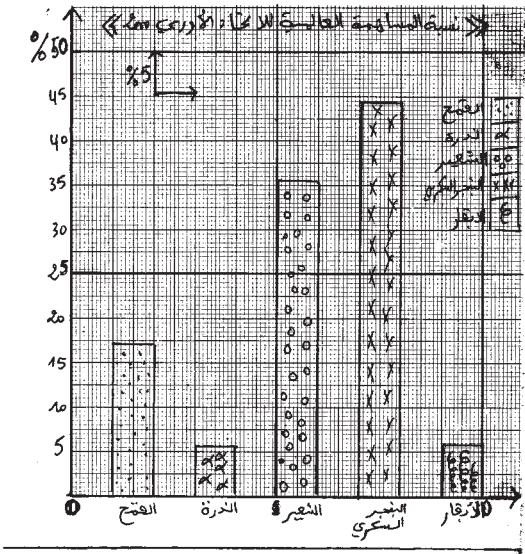 نسبة المساهمة العالمية للاتحاد الأوربي سنة
%50
%5
45
40
35
30
25
20
15
10
5
0
القمح
الذرة
الشعير
الشمندر السكري
الأبقار
القمح
الذرة
الشعير
السكري
الأبقار